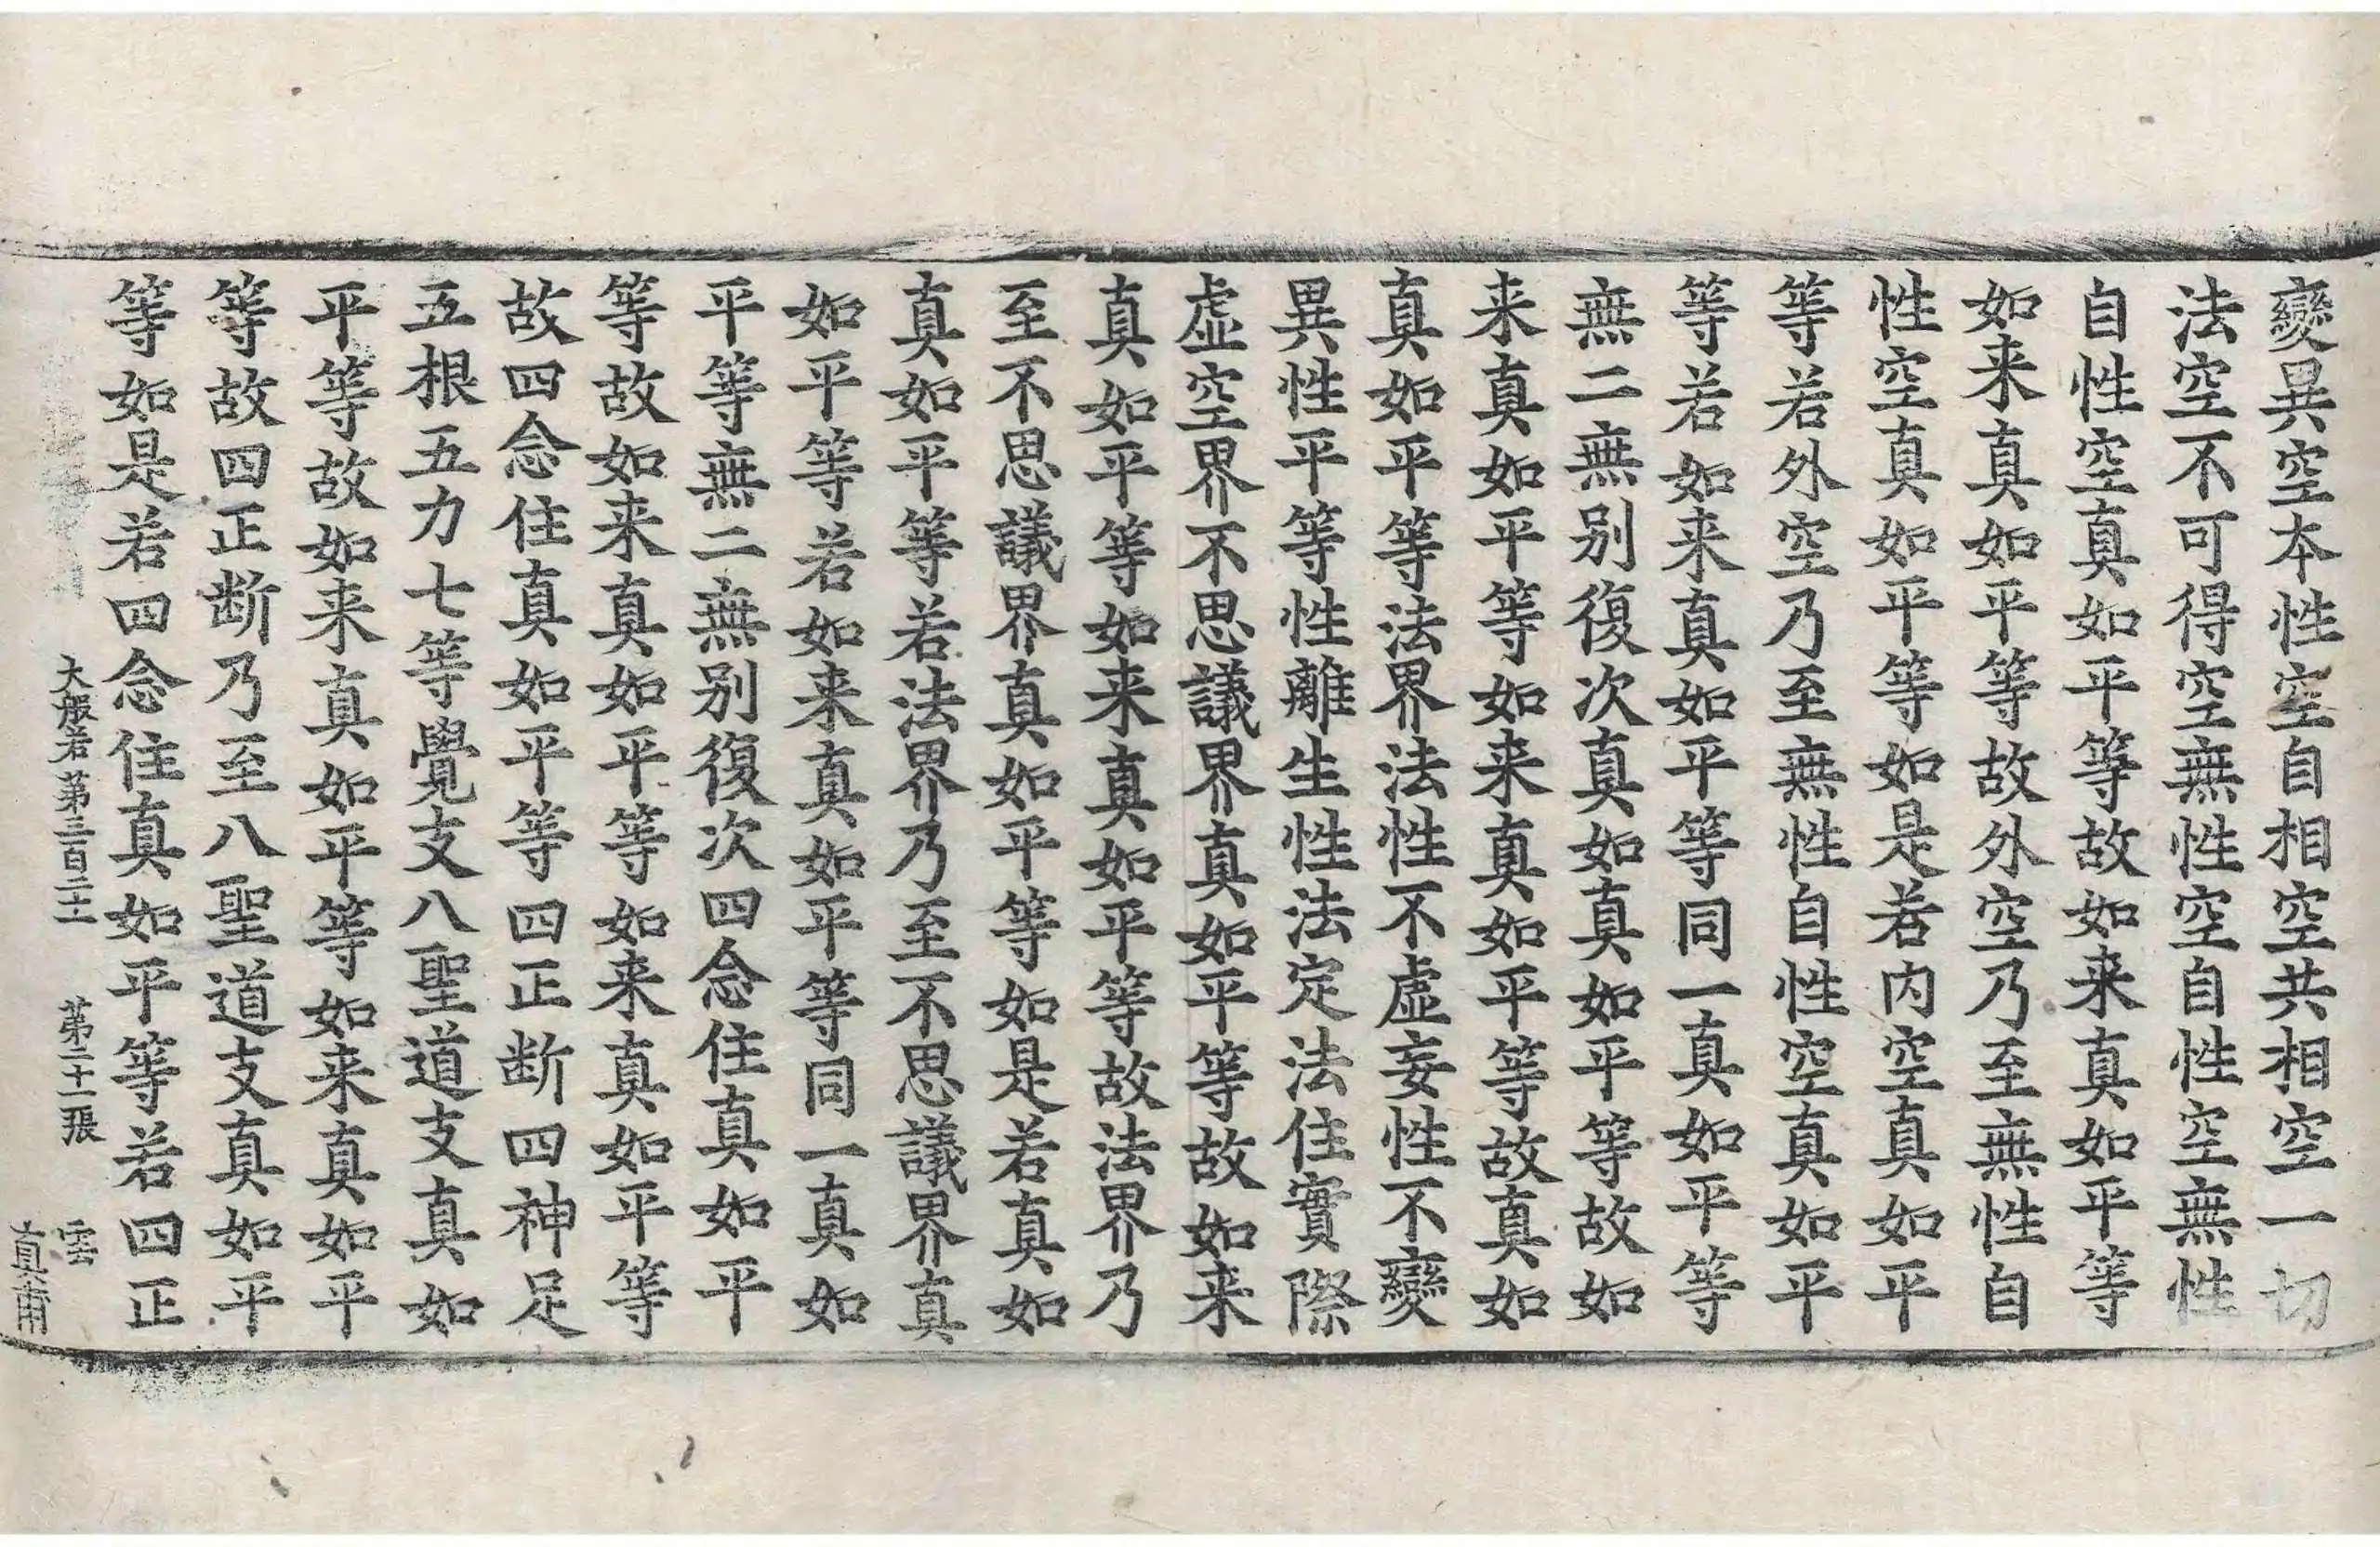 變異空本性空自相空共相空一切
法空不可得空無性空自性空無性
自性空真如平等故如来真如平等
如来真如平等故外空乃至無性自
性空真如平等如是若内空真如平
等若外空乃至無性自性空真如平
等若如来真如平等同一真如平等
無二無别復次真如真如平等故如
来真如平等如来真如平等故真如
真如平等法界法性不虚妄性不變
異性平等性離生性法定法住實際
虚空界不思議界真如平等故如来
真如平等如来真如平等故法界乃
至不思議界真如平等如是若真如
真如平等若法界乃至不思議界真
如平等若如来真如平等同一真如
平等無二無别復次四念住真如平
等故如来真如平等如来真如平等
故四念住真如平等四正断四神足
五根五力七等覺支八聖道支真如
平等故如来真如平等如来真如平
等故四正断乃至八聖道支真如平
等如是若四念住真如平等若四正
大般若第三百二十 第二十一張 雲
真甫